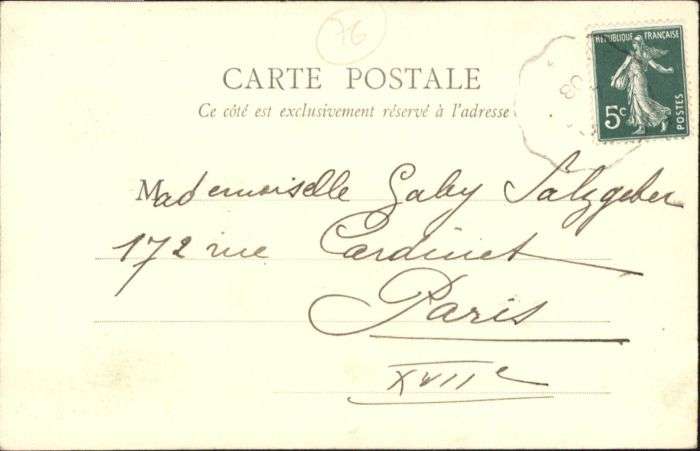 76
CARTE POSTALE
Ce côté est exclusivement réservé à l'adresse
REPUBLIQUE FRANÇAISE
5c
POSTES
03
Mademoiselle Gaby Salzgeber
172 rue Cardinet
Paris
XVIIe